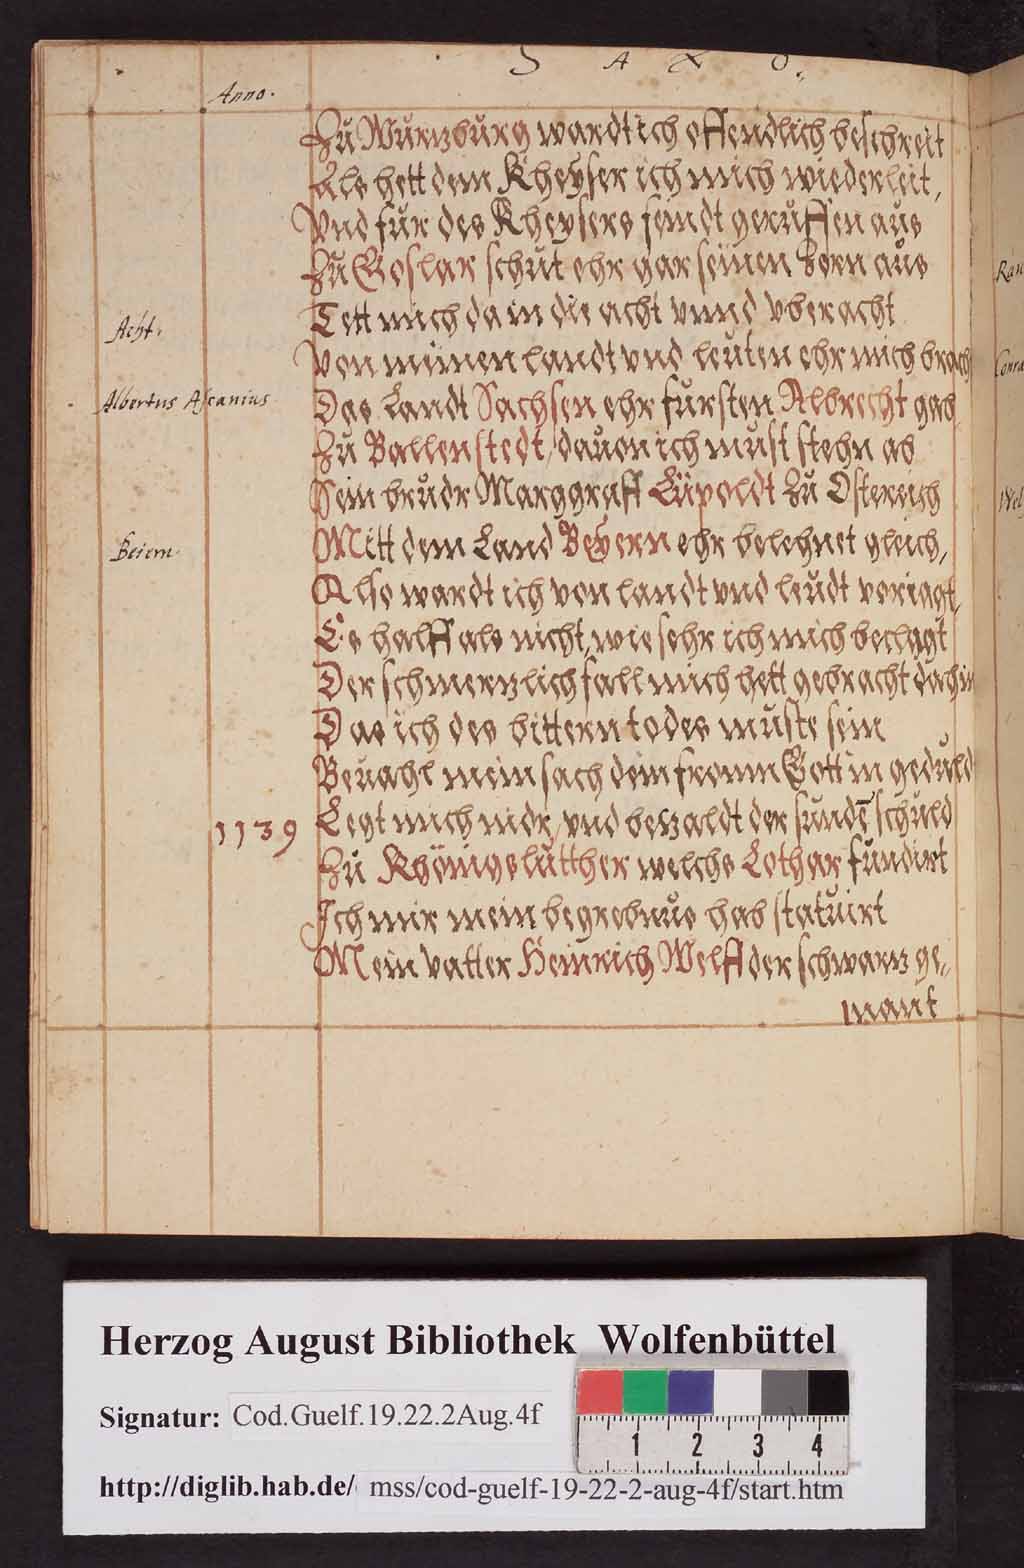 S A X O.
Anno.
Zu Wurzburg wardt ich offendlich beschreit
Als hett dem Kheyser ich mich wiederleit,
Vnd fur des Kheysers feindt geruffen aus
Zu Goslar schut ehr gar seinen Zorn aus
Acht.
Tett mich da in die acht vnnd vberacht
Von meinen landt vnd leuten ehr mich brach
Albertus Ascanius
Das Landt Sachsen ehr fursten Albrecht gab
Zu Ballenstedt, dauon ich must stehn ab
Sein brudr Marggraff Lüpoldt Zu Ostereich
Beiern.
Mitt dem Land Beyern ehr belehnet gleich,
Also wardt ich von landt vnd leudt voriagt,
Es halff als nicht, wie sehr ich mich beclagt
Der schmerzlich fall mich hett gebracht dahin
Das ich des bittern todes muste sein
Beuahl mein sach dem fromn Gott in geduld
1139
Legt mich nidr, vnd bezaldt der sundē schuld
Zu Khönigslutther welchs Lothar fundirt
Ich mir mein begrebnus hab statuirt
Mein vatter Heinrich Welff der schwarz ge„
nant
Rau
Conra
Wel
Herzog August Bibliothek Wolfenbüttel
Signatur: Cod.Guelf.19.22.2Aug.4f
1 2 3 4
http://diglib.hab.de/ mss/cod-guelf-19-22-2-aug-4f/start.htm